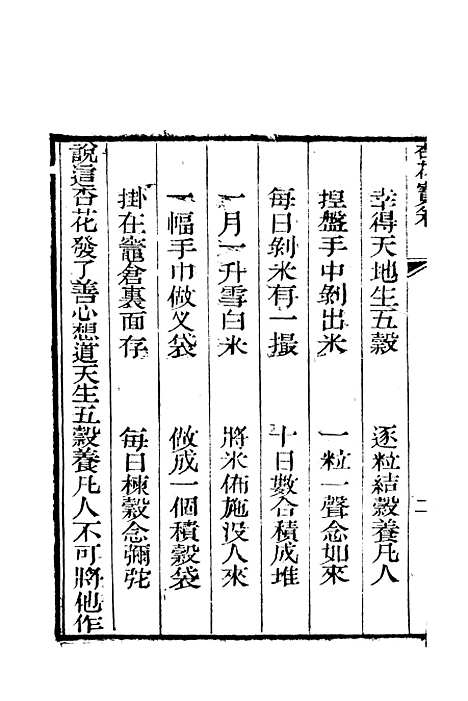 杏花寶卷
二
幸得天地生五穀　逐粒結穀養凡人
揑盤手中剝出米　一粒一聲念如來
每日剝米有一撮　十日數合積成堆
一月一升雪白米　將米佈施没人來
一幅手巾做叉袋　做成一個積穀袋
掛在竈倉裏面存　每日揀穀念彌陀
說這杏花發了善心想道天生五穀養凡人不可將他作